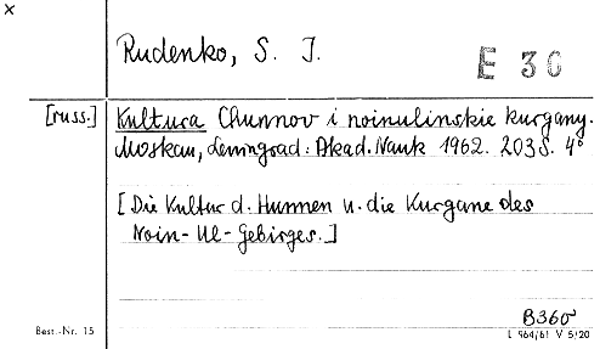 x
Rudenko, S. I.
E 30
[russ.] Kultura Chunnov i noinulinskie kurgany.
Moskau, Leningrad: Akad. Nauk 1962. 203 S. 4°
[Die Kultur d. Hunnen u. die Kurgane des
Noin-Ul-Gebirges.]
B360
Best.-Nr. 15
L 964/61 V 5/20